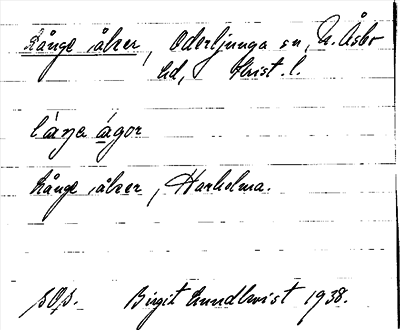 Långe åker, Oderljunga sn, N. Åsbo
hd, Krist. l.
láŋa ágor
Långe åker, Harholma.
sOp. Birgit Lundkvist 1938.